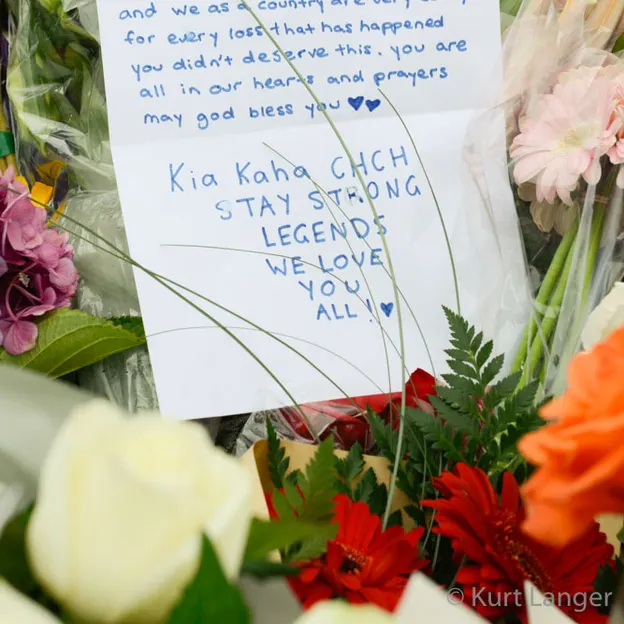 and we as a country are very
for every loss that has happened
you didn't deserve this. you are
all in our hearts and prayers
may god bless you
Kia Kaha CHCH
STAY STRONG
LEGENDS
WE LOVE
YOU
ALL!
© Kurt Langer